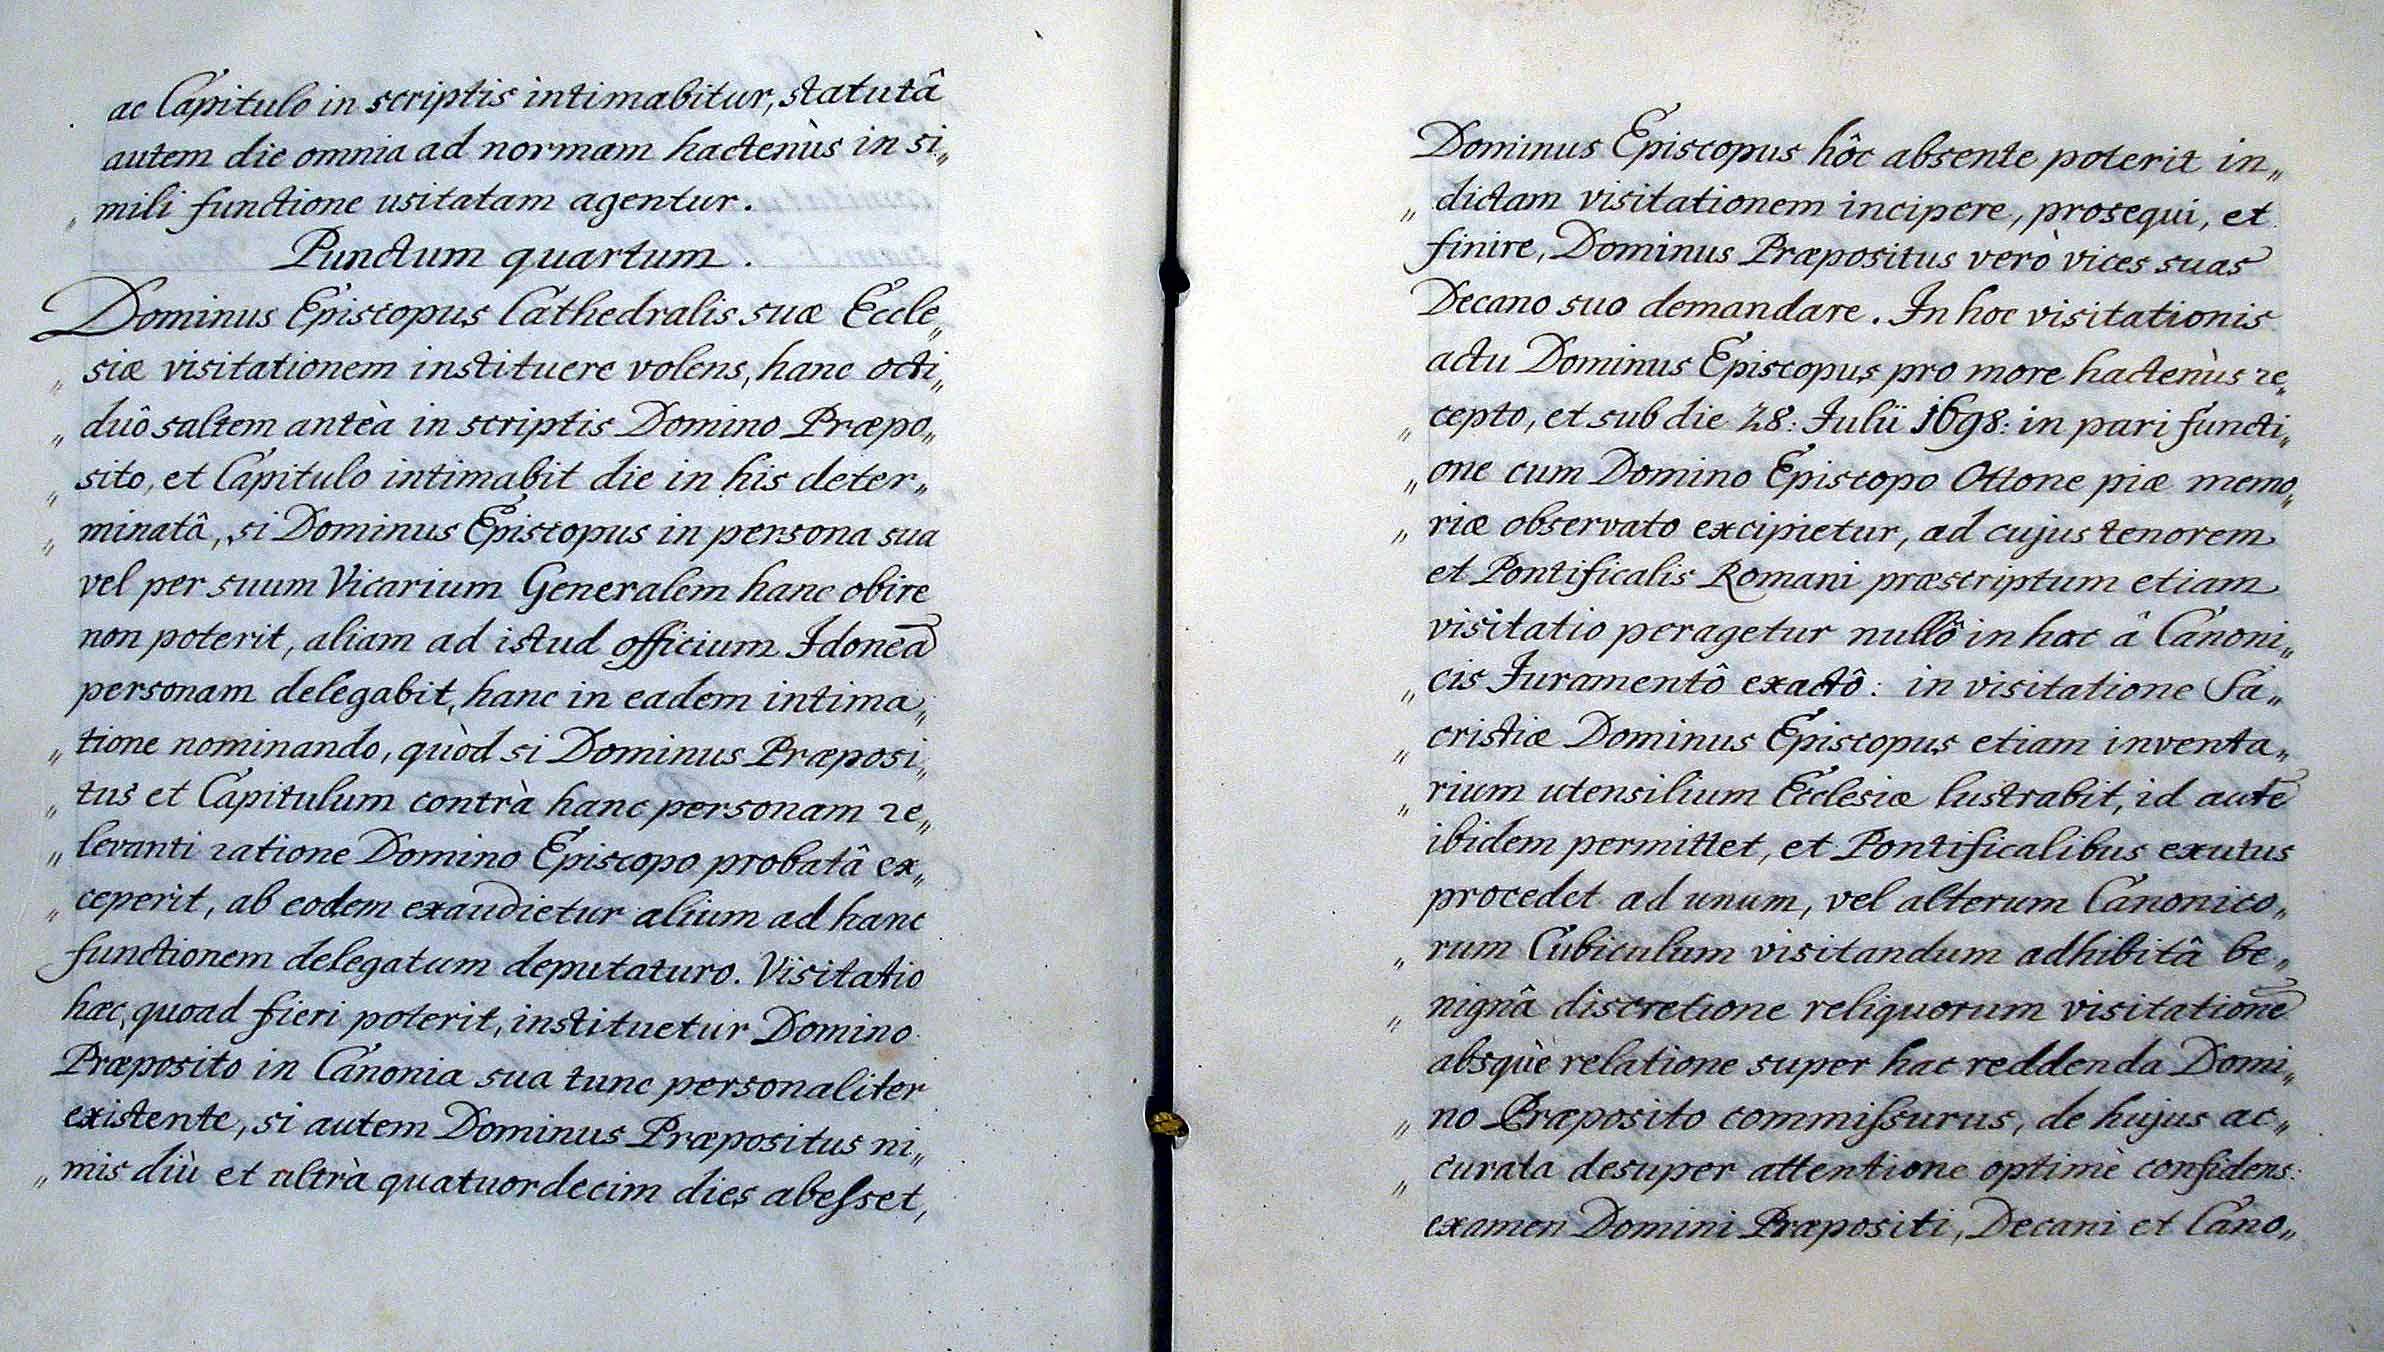 ac Capitulo in scriptis intimabitur, statutâ
autem die omnia ad normam hactenùs in si„
„ mili functione usitatam agentur.
Punctum quartum.
Dominus Episcopus Cathedralis suæ Eccle„
„ siæ visitationem instituere volens, hanc octi„
„ duô saltem anteà in scriptis Domino Præpo„
„ sito, et Capitulo intimabit die in his deter„
„ minatâ, si Dominus Episcopus in persona sua
vel per suum Vicarium Generalem hanc obire
non poterit, aliam ad istud officium Idoneã
personam delegabit, hanc in eadem intima„
„ tione nominando, quòd si Dominus Præposi„
„ tus et Capitulum contrà hanc personam re„
„ levanti ratione Domino Episcopo probatâ ex„
„ ceperit, ab eodem exaudietur alium ad hanc
functionem delegatum deputaturo. Visitatio
hæc, quoad fieri poterit, instituetur Domino
Præposito in Canonia sua tunc personaliter
existente, si autem Dominus Præpositus ni„
„ mis diù et ultrà quatuordecim dies abesset,
Dominus Episcopus hôc absente poterit in„
„ dictam visitationem incipere, prosequi, et
finire, Dominus Præpositus verò vices suas
Decano suo demandare. In hoc visitationis
actu Dominus Episcopus pro more hactenùs re„
„ cepto, et sub die 28: Julii 1698: in pari functi„
„ one cum Domino Episcopo Ottone piæ memo„
„ riæ observato excipietur, ad cujus tenorem
et Pontificalis Romani præscriptum etiam
visitatio peragetur nullô in hac â Canoni„
„ cis Juramentô exactô: in visitatione Sa„
„ cristiæ Dominus Episcopus etiam inventa„
„ rium utensilium Ecclesiæ lustrabit, id autẽ
ibidem permittet, et Pontificalibus exutus
procedet ad unum, vel alterum Canonico„
„ rum Cubiculum visitandum adhibitâ be„
„ nignâ discretione reliquorum visitationẽ
absquè relatione super hac reddenda Domi„
„ no Præposito commissurus, de hujus ac„
„ curata desuper attentione optimè confidens:
examen Domini Præpositi, Decani et Cano„